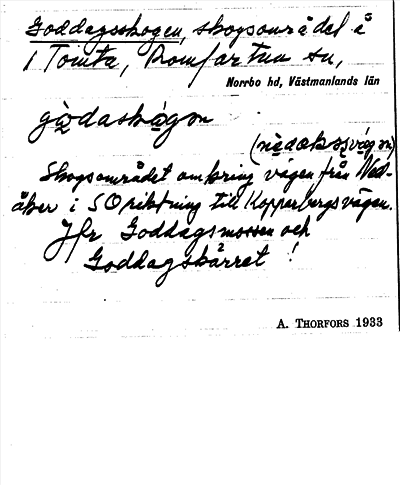 Goddagsskogen, skogsområdet å
i Tomta, Romfartuna sn,
Norrbo hd, Västmanlands län
gòdaskògon
(nèdəksvägən)
Skogsområdet omkring vägen från Ned-
åker i SO riktning till Kopparbergsvägen.
Jfr Goddagsmossen och
Goddagskärret !
A. THORFORS 1933